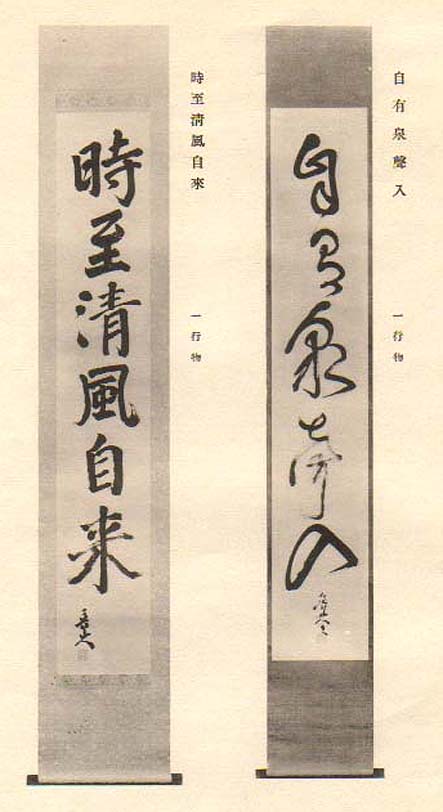 自有泉聲入
一行物
自有泉声入
時至淸風自來
一行物
時至清風自来